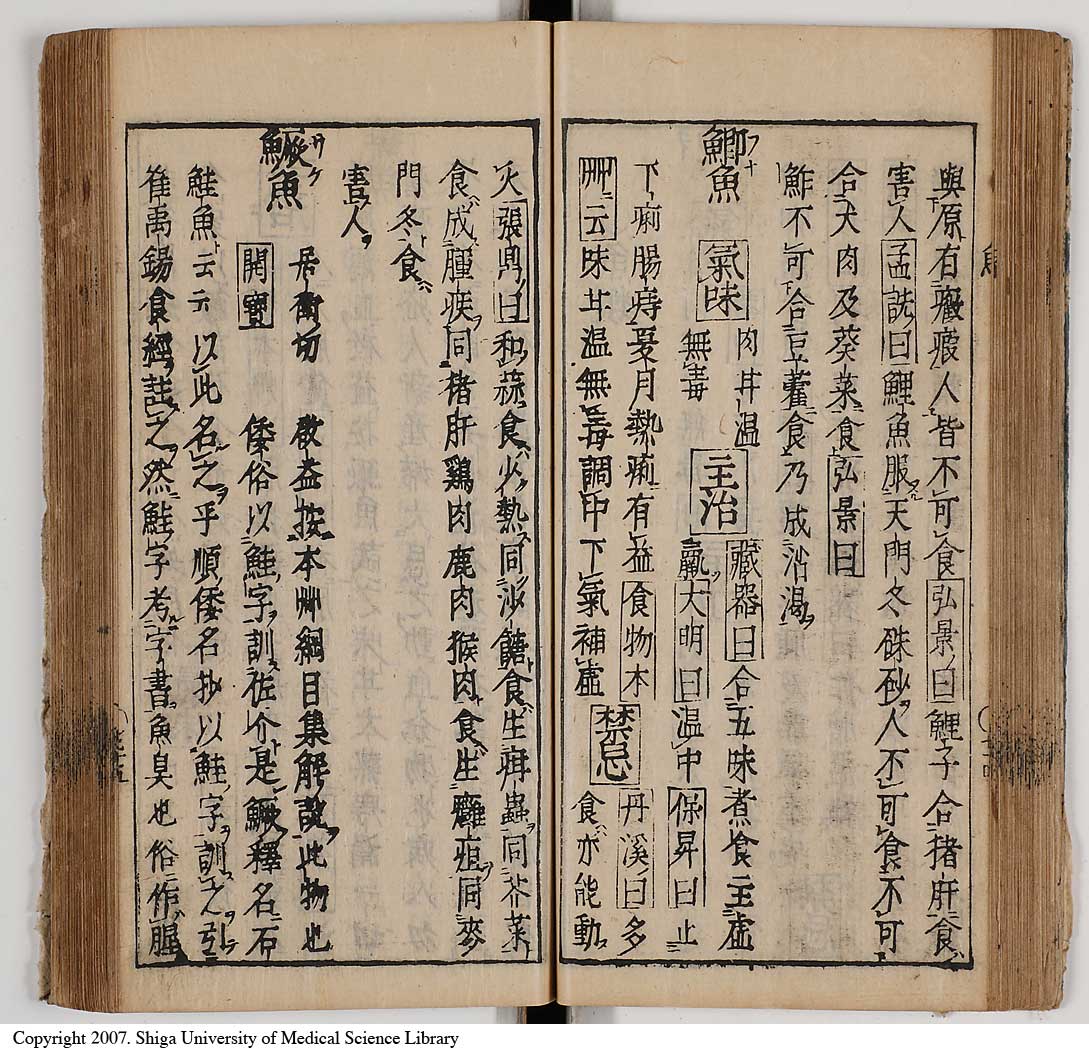 與原有癥瘕人皆不可食弘景曰鯉子合猪肝食
害人孟詵曰鯉魚服天門冬硃砂人不可食不可
合犬肉及葵菜食弘景曰
鮓不可合豆藿食乃成沾渴
鯽魚 フナ
氣味
肉甘温
無毒
主治
藏器曰合五味煮食主虛
羸大明曰温中保昇曰止
下痢腸痔夏月熱痢有益食物本
艸云味甘温無毒調中下氣補虛
禁忌
丹溪曰多
食亦能動
火張鼎曰和蒜食少熱同沙糖食生疳蟲同芥菜
食成腫疾同猪肝鷄肉鹿肉猴肉食生癰疽同麥
門冬食
害人
鱖魚 サケ
居衛切
開寶
敬益按本艸綱目集解說此物也
倭俗以鮭字訓佐介是鱖釋名石
鮭魚云云以此名之乎順倭名抄以鮭字訓之引
崔禹錫食經註之然鮭字考字書魚臭也俗作腥
Copyright 2007. Shiga University of Medical Science Library